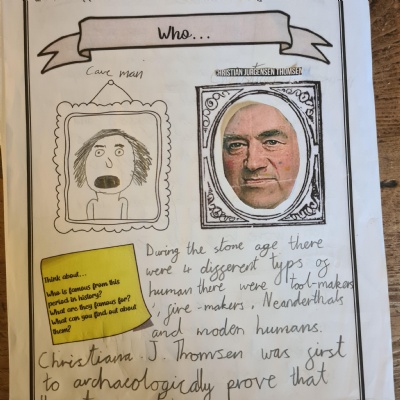 Who...
cave man
CHRISTIAN JURGENSEN THOMSEN
Think about...
Who is famous from this
period in history?
What are they famous for?
What can you find out about
them?
During the stone age there
were 4 different typs of
human there were tool-makers
, fire-makers, Neanderthals
and moden humans.
Christiana. J. Thomsen was first
to archaeologically prove that